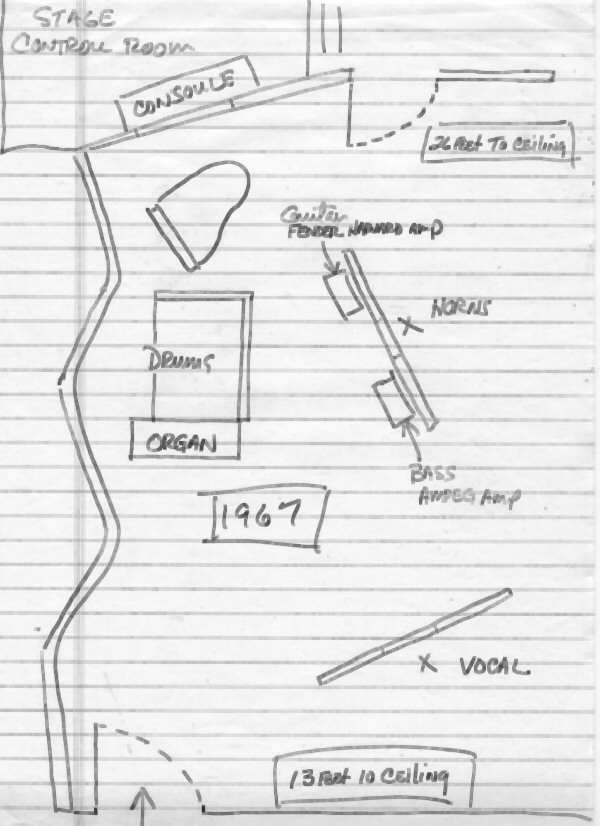 STAGE
CONTROLL ROOM
CONSOULE
26 Feet To Ceiling
Guitar
FENDER HARVARD AMP
HORNS
DRUMS
ORGAN
BASS
AMPEG AMP
1967
VOCAL
13 Feet to Ceiling